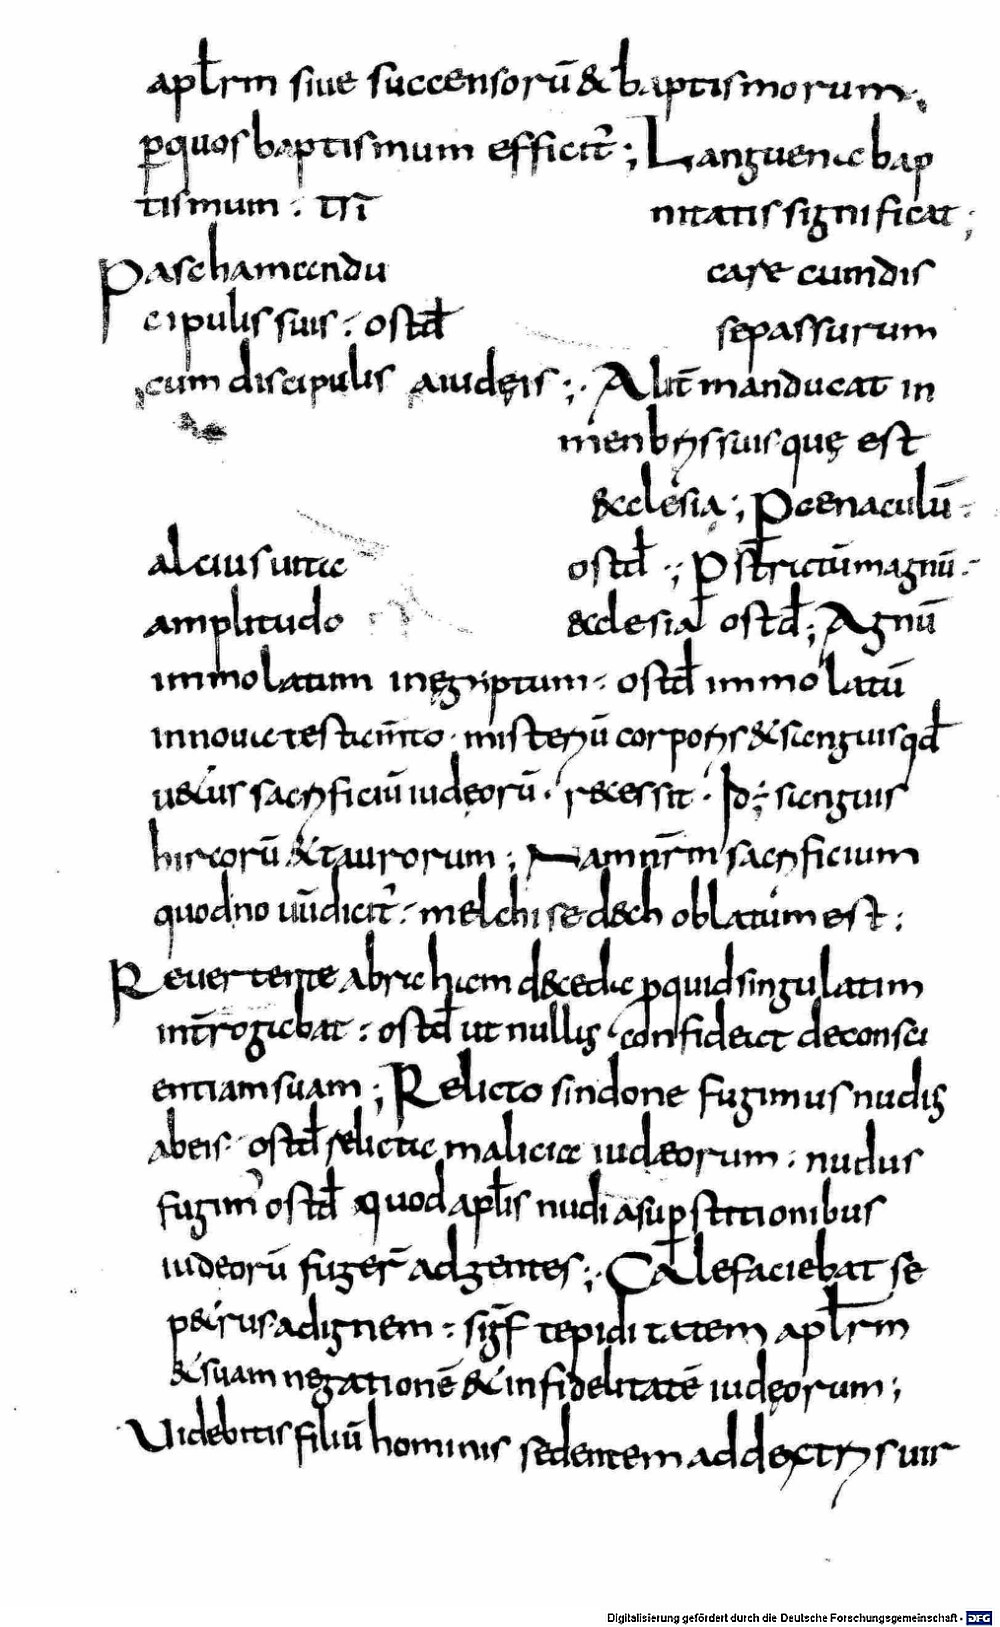 apl̄rm siue succensorū & baptismorum.
p̄quos baptismum efficit̄ ; Languena bap
tismum . tri nitatis significat ;
Pascham cendu care cum dis
cipulis suis . ostd̄ se passurum
cum discipulis a iudęis ; Alit̄ manducat in
menbris suis quę est
&clesia ; P cenaculū
alcius uitae ostd̄ ; P strictū magnū .
amplitudo &clesia ostd̄ ; Agnū
immolatum in egyptum . ostd̄ immolatū
in nouo testam̄to . misteriū corporis & sanguis qd̄
u&us sacrificiū iudęorū . recessit . Id ; sanguis
hircorū & taurorum ; Nam nr̄m sacrificium
quod no uū dicit̄ . melchisedech oblatum est ;
Reuertente abraham de cede p̄ quid singulatim
int̄rogabat . ostd̄ ut nullis confideat de consci
entiam suam ; Relicto sindone fugimus nudis
ab eis . ostd̄ relicta malicia iudæorum . nudus
fugim' ostd̄ quod apl̄is nudi a sup̄stitionibus
iudeorū fuger̄ ad gentes ; Calefaciebat se
p&rus ad ignem . sigf̄ tepiditatem apl̄rm
& suam negationē & infidelitatē iudęorum ;
Uidebitis filiū hominis sedentem ad dextris uir
Digitalisierung gefördert durch die Deutsche Forschungsgemeinschaft - DFG